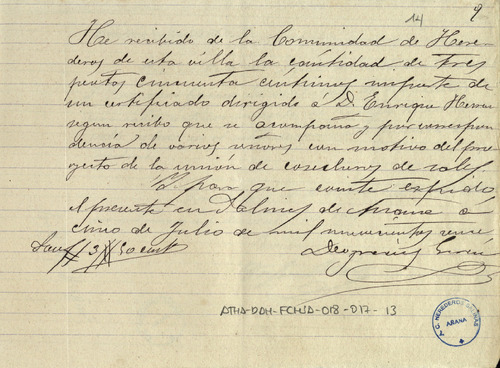 14
9
He recibido de la Comunidad de Here
deros de esta villa la cantidad de tres
pesetas cincuenta céntimos importe de
un certificado dirigido a D. Enrique
segun recibo que se acompaña y por correspon
dencia de varios con motivo del pro
yecto de la unión de cosecheros de sales
Y para que conste expido
el presente en Salinas de Añana a
cinco de Julio de mil novecientos
Son 3 50 cent
Deogracias
ATHA-DAH-FCHSA-018-017-13
HEREDEROS SALINAS
AÑANA